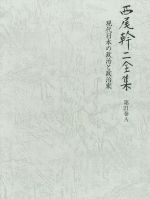 西尾幹二全集
第21巻A
現代日本の政治と政治家